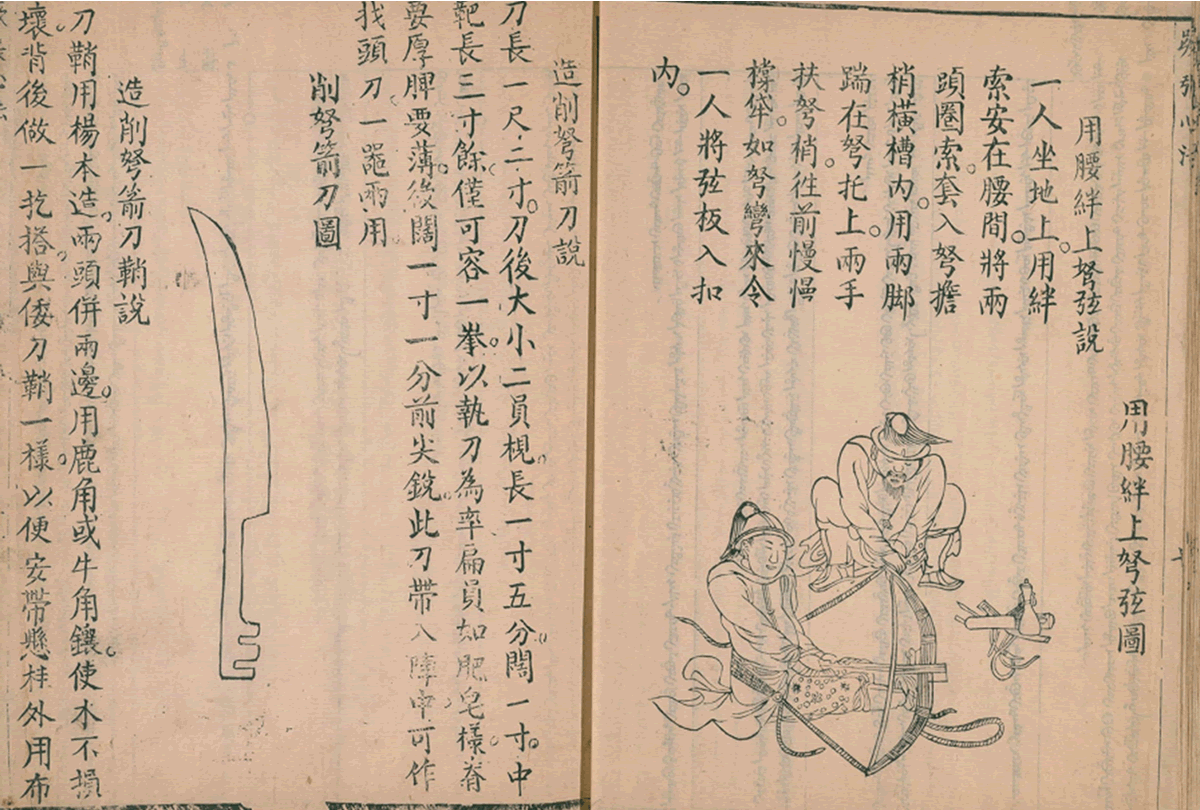 蹶張心法
用腰絆上弩弦圖
用腰絆上弩弦說
一人坐地上。用絆
索安在腰間。將兩
頭圈索。套入弩擔
梢橫槽内。用兩脚
踹在弩托上。兩手
扶弩梢。徃前慢慢
撑。如弩彎來令
一人將弦板入扣
内。
造削弩箭刀說
刀長一尺二寸。刀後大小二員梘。長一寸五分。闊一寸。中
靶長三寸餘。僅可容一拳。以執刀為率扁員如肥皂樣。脊
要厚脾要薄。後闊一寸一分前尖銳。此刀帶入陣中可作
找頭刀。一噐兩用。
削弩箭刀圖
造削弩箭刀鞘說
刀鞘用楊本造。兩頭併兩邊。用鹿角或牛角鑲。使水不損
壞背後做一扢搭。與倭刀鞘一樣。以便安帶懸桂外用布